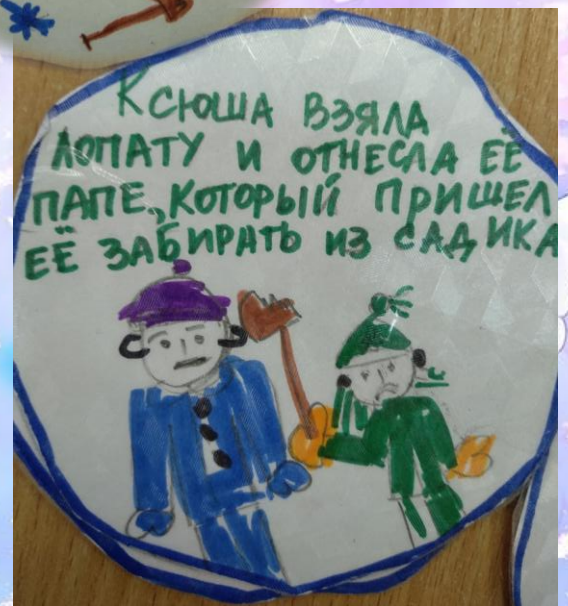 Ксюша взяла
лопату и отнесла её
папе, который пришел
её забирать из садика